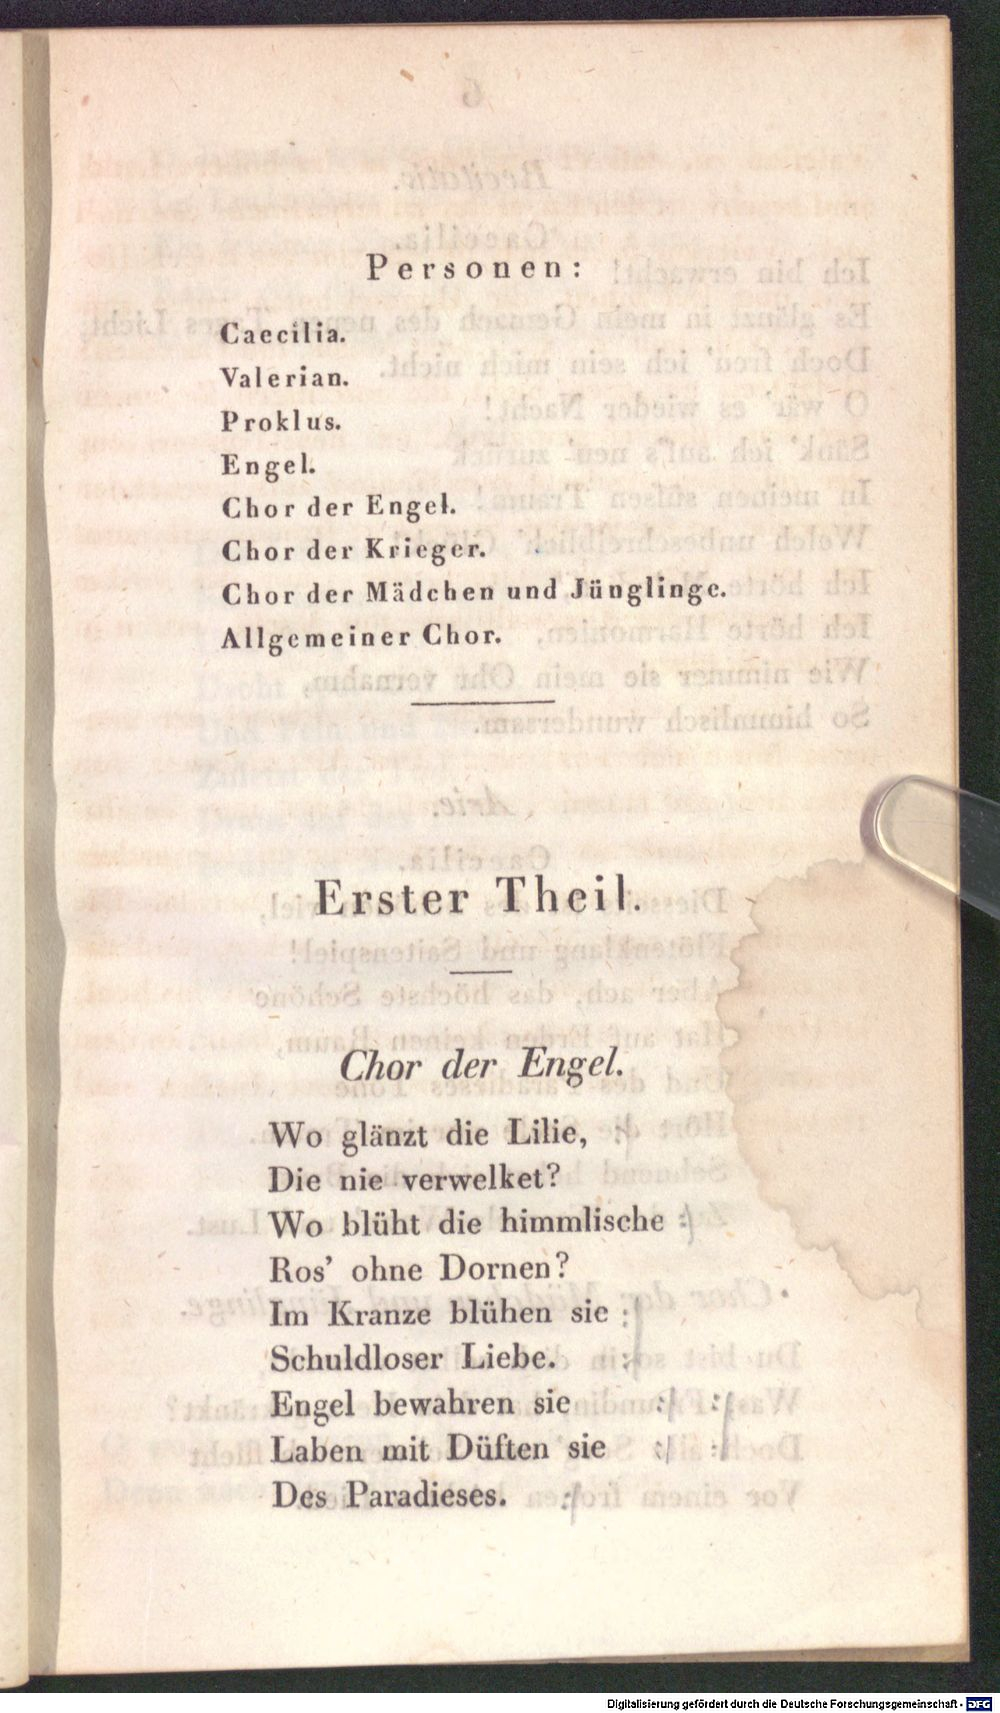 Personen:
Caecilia.
Valerian.
Proklus.
Engel.
Chor der Engel.
Chor der Krieger.
Chor der Mädchen und Jünglinge.
Allgemeiner Chor.
Erster Theil.
Chor der Engel.
Wo glänzt die Lilie,
Die nie verwelket?
Wo blüht die himmlische
Ros' ohne Dornen?
Im Kranze blühen sie
Schuldloser Liebe.
Engel bewahren sie
Laben mit Düften sie
Des Paradieses.
Digitalisierung gefördert durch die Deutsche Forschungsgemeinschaft - DFG